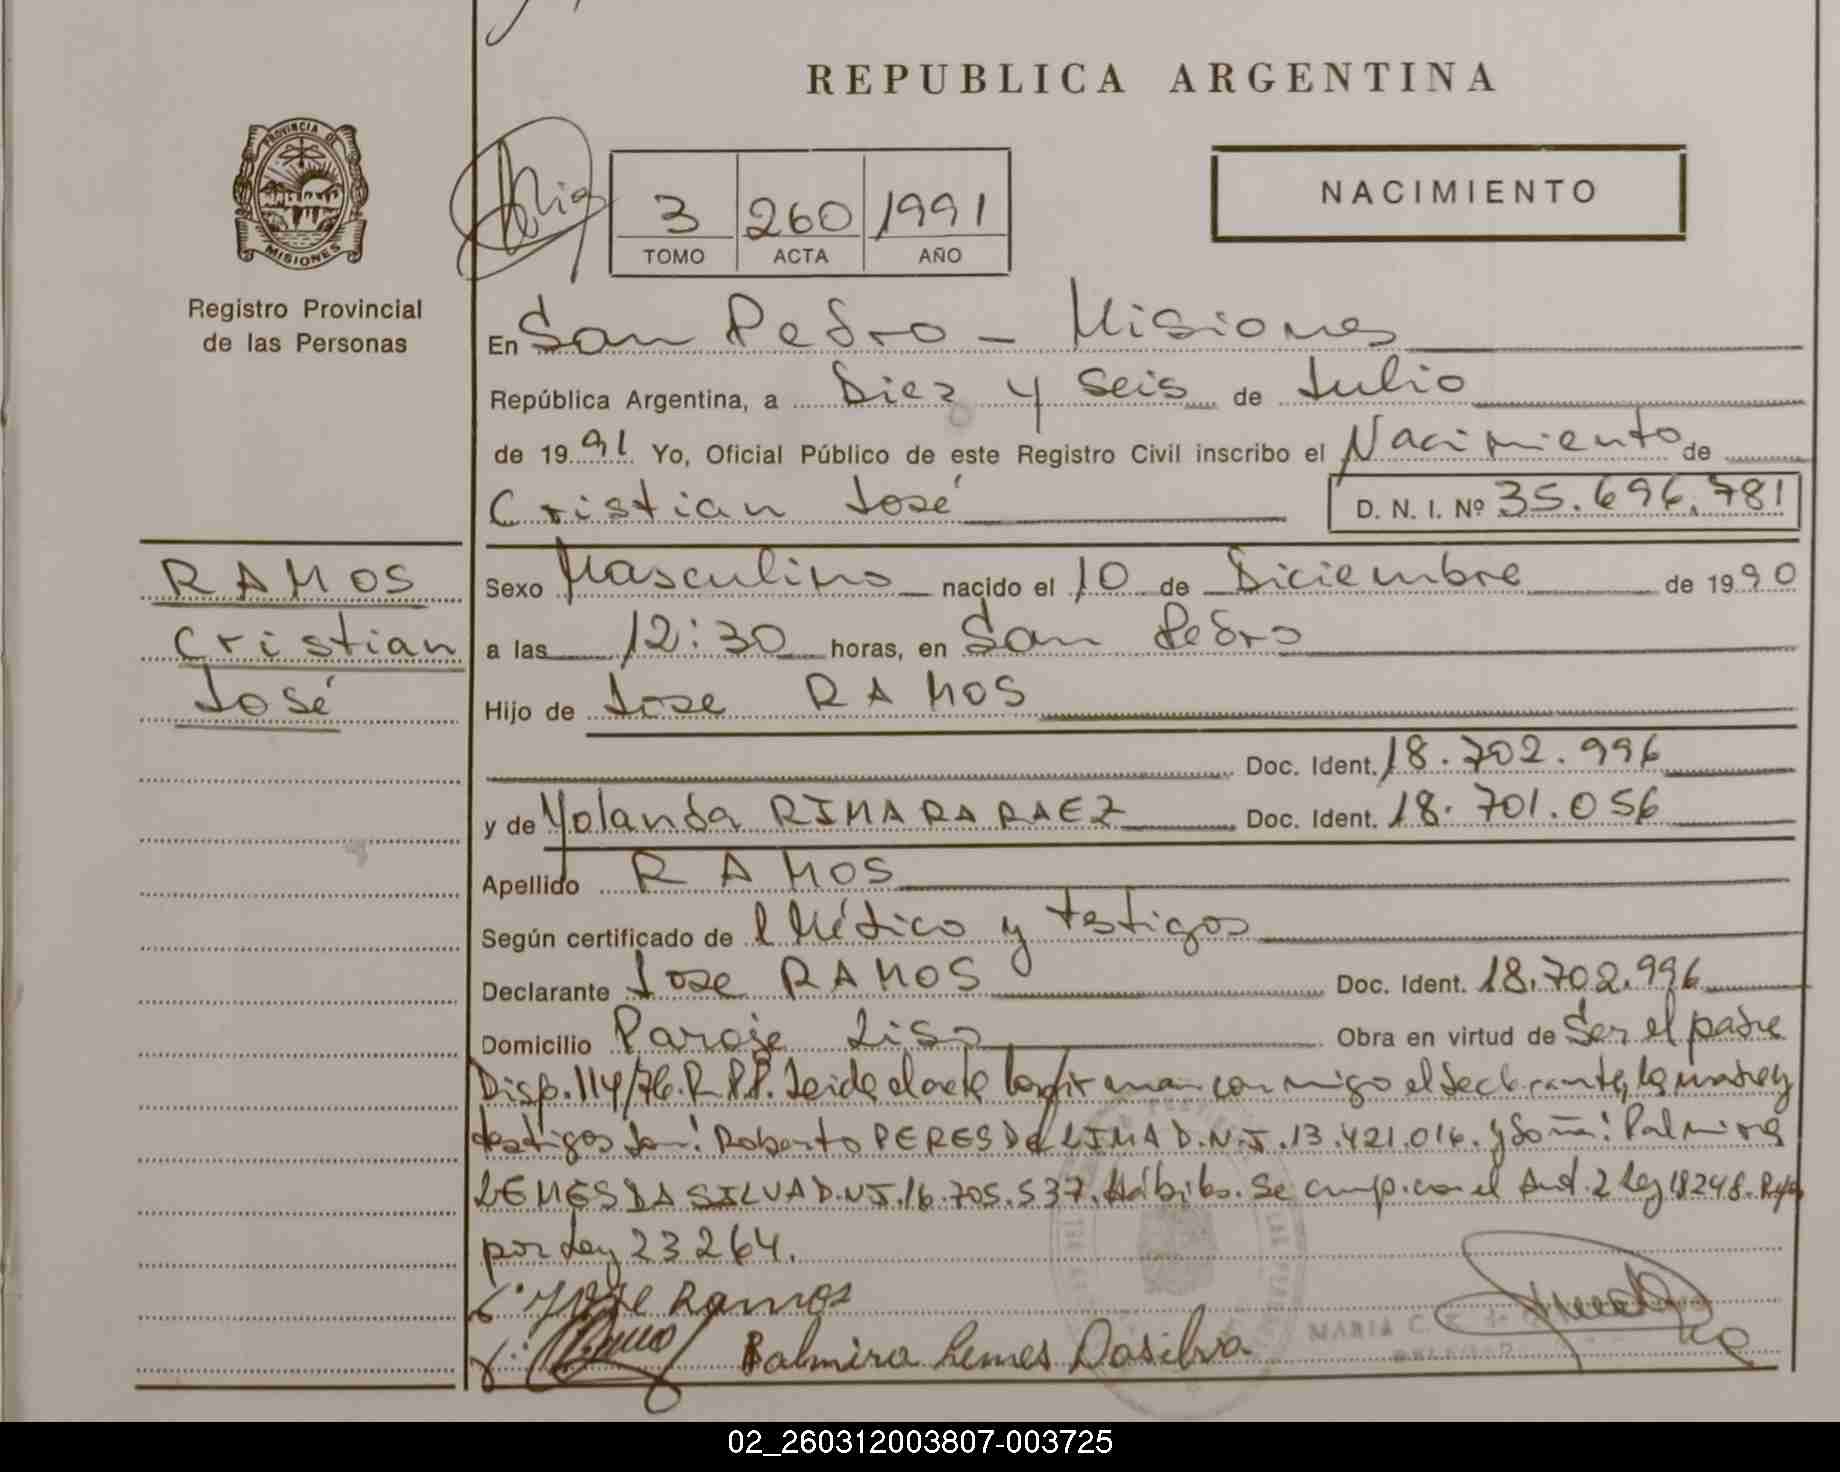 REPUBLICA ARGENTINA
PROVINCIA DE
MISIONES
Registro Provincial
de las Personas
3 260 1991
TOMO ACTA AÑO
NACIMIENTO
En San Pedro - Misiones
República Argentina, a Diez y seis de Julio
de 1991 Yo, Oficial Público de este Registro Civil inscribo el Nacimiento de
Cristian José D. N. I. Nº 35.696.781
RAMOS
Cristian
José
Sexo Masculino nacido el 10 de Diciembre de 1990
a las 12:30 horas, en San Pedro
Hijo de Jose RAMOS
Doc. Ident. 18.702.996
y de Yolanda Doc. Ident. 18.701.056
Apellido RAMOS
Según certificado de l Médico y testigos
Declarante Jose RAMOS Doc. Ident. 18.702.996
Domicilio Paraje Liso Obra en virtud de Ser el padre
Disp. 114/76. R.P.P. Leida el acta la firman conmigo el declarante, la madre y
testigos Don: Roberto PERES De LIMA D.N.I. 13.421.016. y Doña: Palmira
LEMES DA SILVA D.N.I. 16.705.537. Hábiles. Se cump. con el Art. 2 Ley 18248.
por Ley 23264.
Jose Ramos
Palmira Lemes Dasilva
MARIA C.
02_260312003807-003725